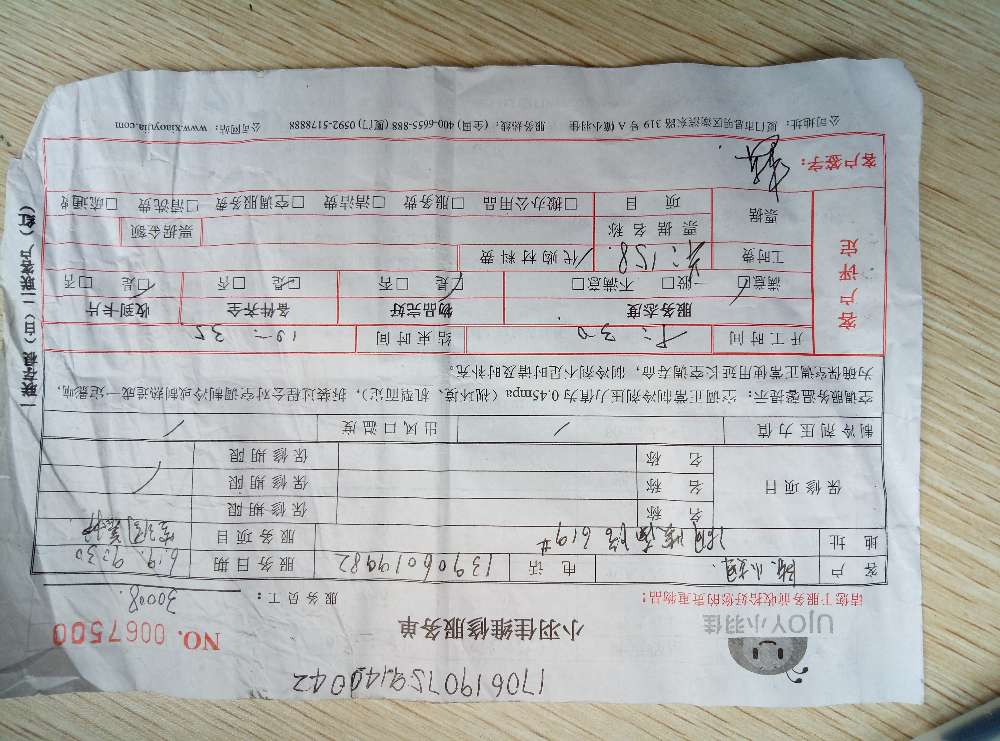 170619075914D042
UJOY小羽佳
小羽佳维修服务单
NO. 0067500
请您于服务前收拾好您的贵重物品:
服务员工: 30008.
客 户 电 话 13906019982 服务日期 6.19. 9:30
地 址 619# 服务项目 空调
保修项目 名 称 保修期限
名 称 保修期限
名 称 保修期限
制冷剂压力值 / 出风口温度 /
空调服务温馨提示: 空调正常制冷剂压力值为0.45mpa (视环境、机型而定), 拆装过程会对空调制冷或制热造成一定影响,
为确保空调正常使用延长空调寿命, 制冷剂不足时请及时补充。
客户评定
开工时间 9:30 结束时间 19:35
服务态度 物品完好 备件齐全 收到卡片
满意□ 一般□ 不满意□ □是 □否 □是 □否 □是 □否
工时费 158. 代购材料费
票据 票据名称 票据金额
项 目 □搬办公用品 □服务费 □清洁费 □空调服务费 □清洗费 □疏通费
客户签字:
公司地址: 厦门市思明区湖滨东路 319 号 A 幢小羽佳 服务热线: (全国) 400-6655-888 (厦门) 0592-5178888 公司网站: www.xiaoyujia.com
一联存根 (白) 二联客户 (红)